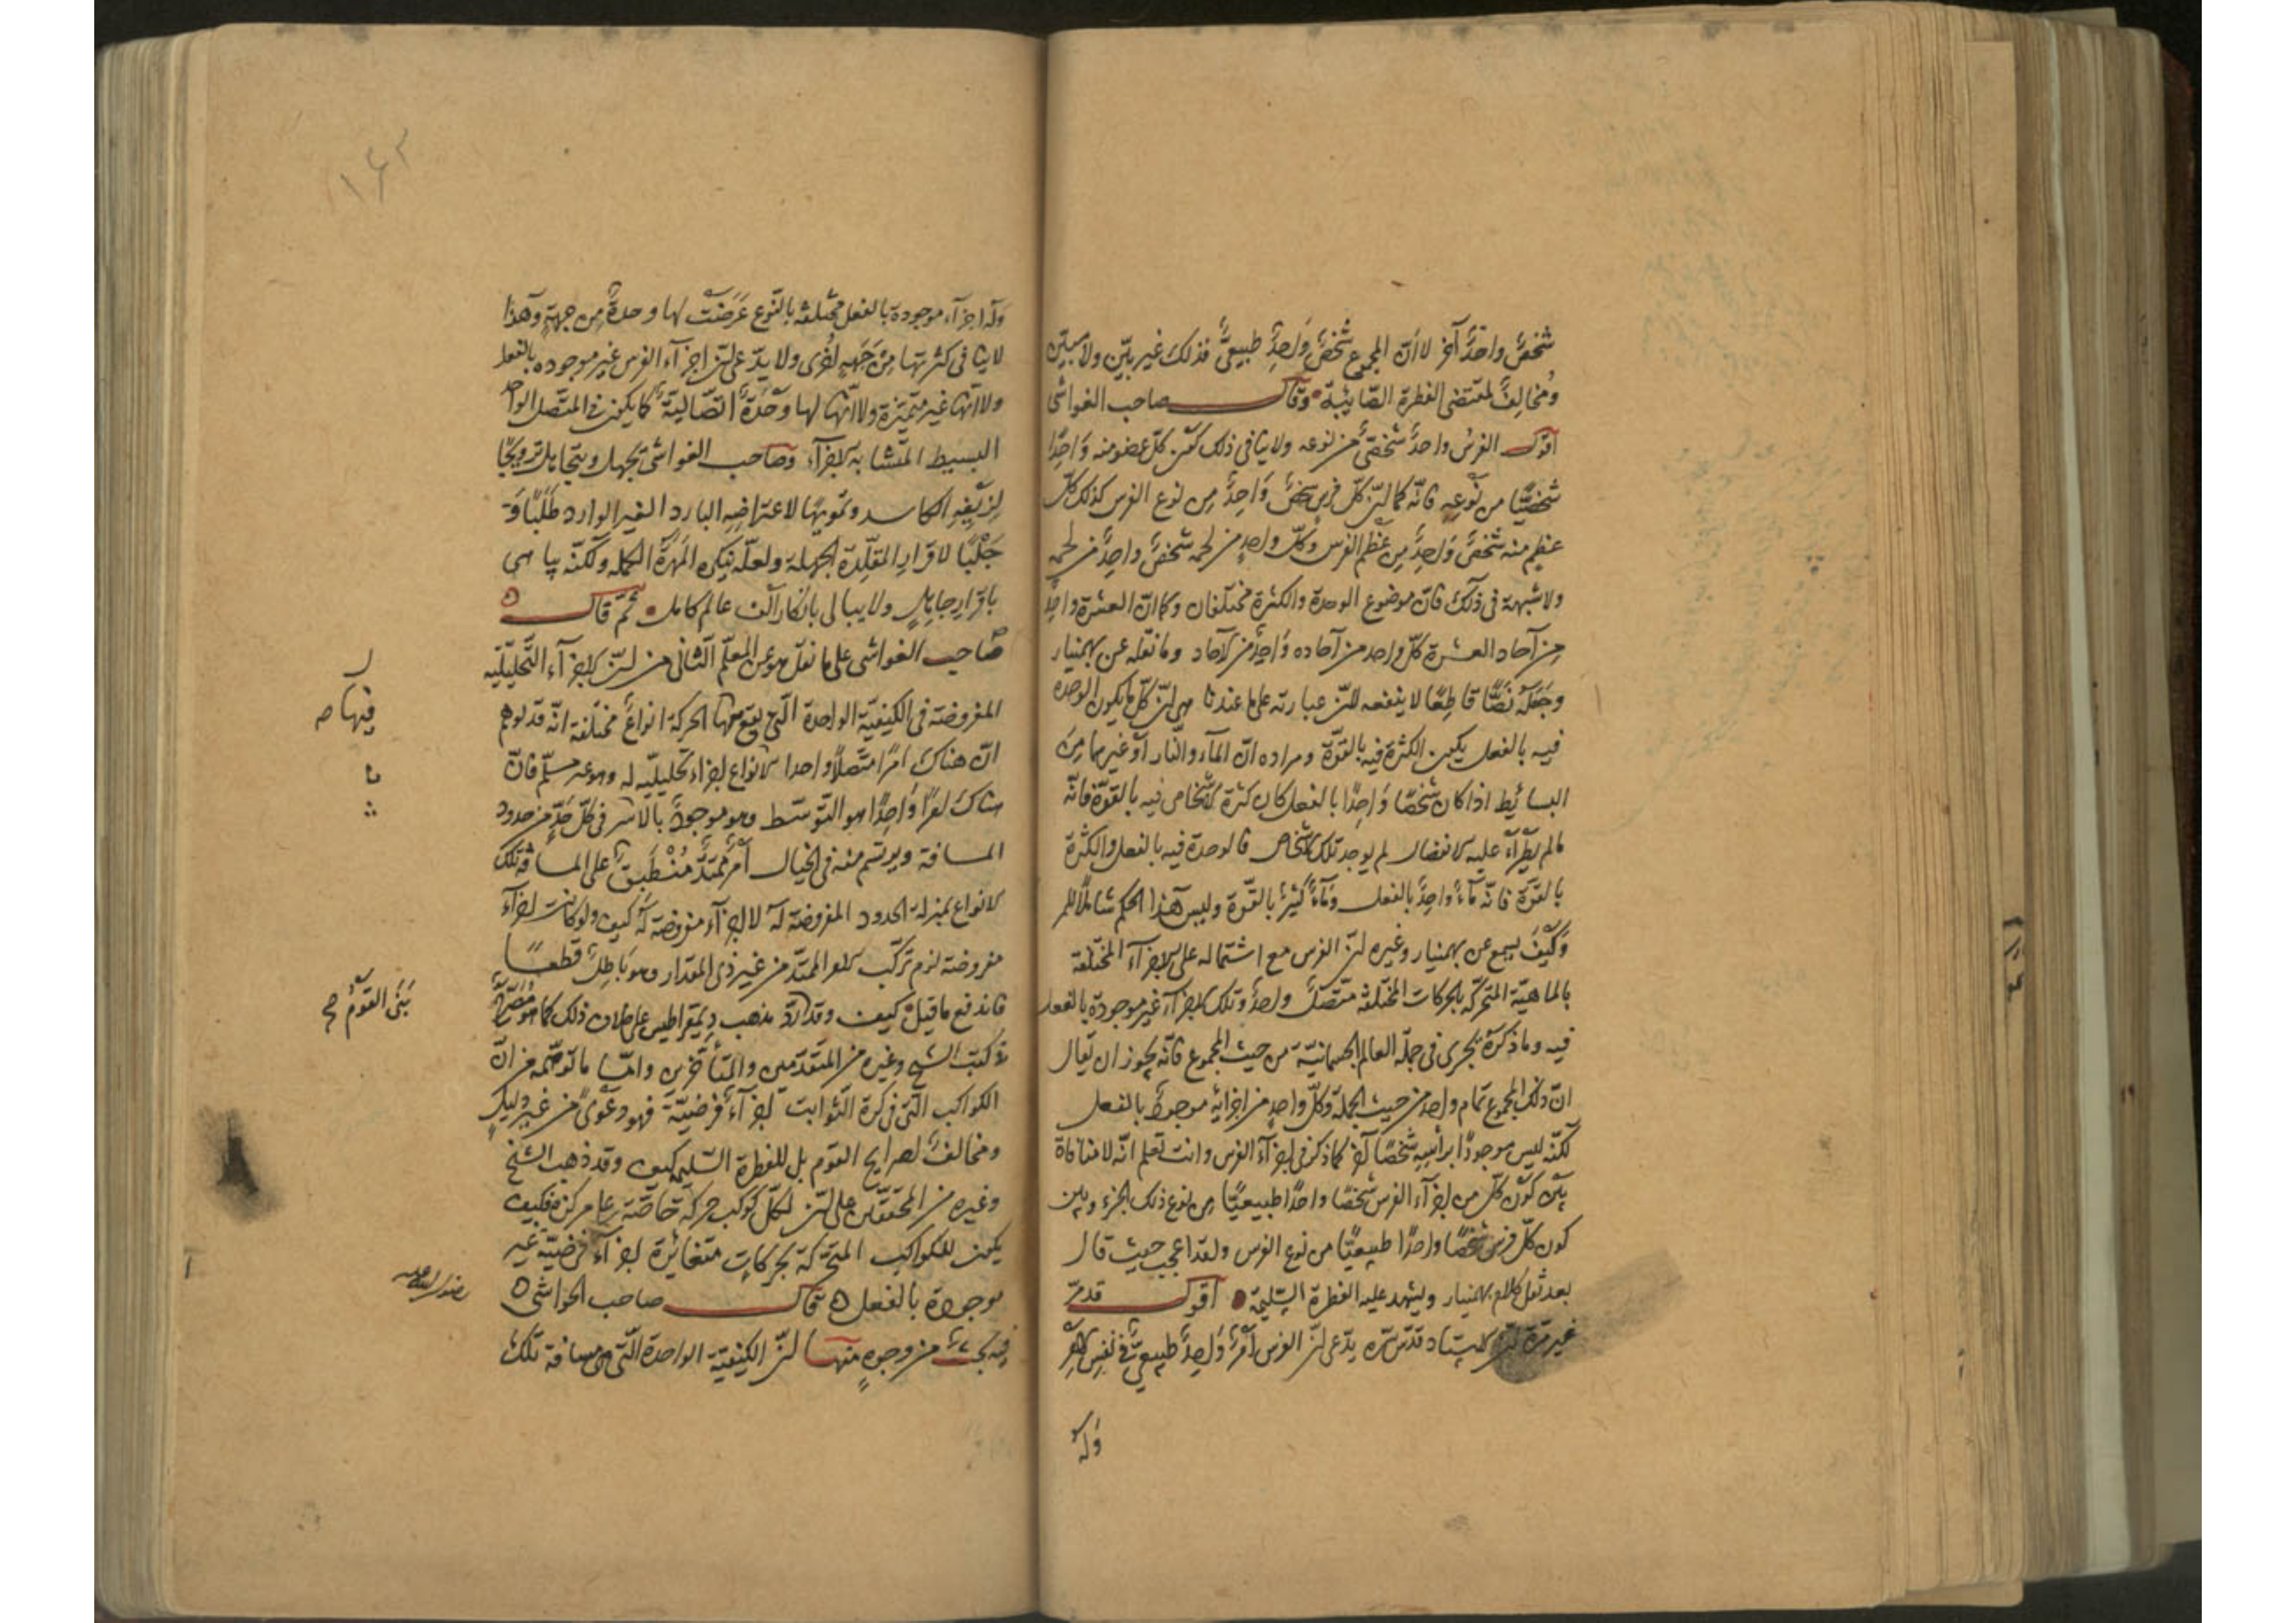 شخصٌ واحدٌ آخر لا أنّ المجموع شخصٌ وَاحِدٌ طبيعىٌّ فذلك غير بيّن ولا مبيّن
ومُخالِفٌ لمقتضى الفطرة الصّائبة وقال صاحب الغواشى
أقول الفرسُ واحدٌ شخصىٌّ من نوعه ولا ينافى ذلك كون كلّ عضو منه وَاحِدًا
شخصيًّا من نَوْعِه فانّه كما انّ كلّ فرس شخصٌ وَاحِدٌ مِن نوع الفرس كذلك كلّ
عظم منه شخصٌ وَاحِدٌ مِن عَظم الفرس وكلّ واحدٍ من لحمه شخصٌ واحِدٌ من لحمه
ولا شبهة فى ذلك فانّ موضوع الوحدة والكثرة مختلفان وكما انّ العشرة واحِدٌ
مِن آحاد العشرة كلّ واحد من آحاده وَاحِدٌ من الآحاد وما نقله عن بهمنيار
وجَعَلَه نَصًّا قاطِعًا لا ينفعه لأنّ عبارته على ما عندنا هى انّ كلّ ما يكون الوحدة
فيه بالفعل يكون الكثرة فيه بالقوّة ومراده انّ المآء والنّار أو غيرهما مِنَ
البسائِط اذا كان شخصًا وَاحِدًا بالفعل كان كثرة الأشخاص فيه بالقوّة فانّه
مالم يطرأ عليه الانفصال لم يوجد تلك الأشخاص فالوحدة فيه بالفعل والكثرة
بالقوّة فانّه مآءٌ واحِدٌ بالفعل ومآءٌ كثيرٌ بالقوّة وليس هذا الحكم شاملًا للمر
وَكَيْفَ يسمع عن بهمنيار وغيره انّ الفرس مع اشتماله على الأجزآء المختلفة
بالماهيّة المتحرّكة بالحركات المختلفة متّصلٌ واحدٌ وتلك الأجزآء غير موجودة بالفعل
فيه وما ذكره يجرى فى جملة العالم الجسمانيّة من حيث المجموع فانّه يجوز ان يقال
انّ ذلك المجموع تمام واحد من حيث الجملة وكلّ واحدٍ من اجزائه موجودٌ بالفعل
لكنّه ليس موجودًا برأسه شخصًا آخر كما ذكر فى اجزآء الفرس وانت تعلم انّه لا منافاة
بَيْن كَوْن كلّ من اجزآء الفرس شخصًا واحدًا طبيعيًّا من نوع ذلك الجزء وبين
كون كلّ فرس شخصًا واحدًا طبيعيًّا من نوع الفرس ولقد اعجب حيث قال
بعد نقل كلام بهمنيار ويشهد عليه الفطرة السّليمة أقول قد مرّ
غير مرّة انّ الأستاد قدّس سرّه يدّعى انّ الفرس أمرٌ وَاحِدٌ طبيعىٌّ فى نفس الأمر
وله
١٦٢
وله اجزآء موجودة بالفعل مختلفة بالنّوع عَرَضَتْ لها وحدةٌ مِن جهةٍ وهذا
لا ينافى كثرتها مِنْ جهةٍ اُخْرى ولا يدّعى انّ اجزآء الفرس غير موجوده بالفعل
ولا انّها غير متميّزة ولا انّها لها وَحْدَةٌ اتّصاليّةٌ كما يكون فى المتّصل الواحد
البسيط المتشابه الأجزآء وصاحب الغواشى تجهل ويتجاهل ترويجًا
لِزيْفِه الكاسد وتمويهًا لاعتراضِه البارد الغير الوارد طَلَبًا و
جَلْبًا لاقرارِ المقلّدة الجهلة ولعلّه ينكره المَهَرَة الكمله ولكنّه يباهى
باقرارِ جاهلٍ ولا يبالى بانكار ألف عالم كامل ثمّ قال
صاحب الغواشى على ما نقل هو عن المعلّم الثّانى من انّ الأجزآء التّحليليّه
المفروضة فى الكيفيّة الواحدة الّتى يقع فيها الحركة انواعٌ مختلفة انّه قد توهم
انّ هناك امرًا متّصلًا واحدا الأنواع اجزاء تحليليّه له وهو غير مسلّم فانّ
هناك امرًا وَاحِدًا هو التّوسّط وهو موجودٌ بالأسر فى كلّ حَدٍّ من حدود
المسافة ويرتسم منه فى الخيال أمرٌ مُمْتَدٌّ مُنْطَبِقٌ على المسافة تلك
الأنواع بمنزلة الحدود المفروضة له لا اجزآء مفروضة له كيف ولو كانت اجزآء
مفروضة لزم تركّب الأمر الممتدّ من غير ذى المقدار وهو بَاطِلٌ قطعًا
فاندفع ما قيل كيف وقد ردّ مذهب ديمقراطيس على خلاف ذلك كما هو مُصَرَّحٌ
فى كتب الشيخ وغيره من المتقدّمين والمتأخّرين وامّا ما توهّمه من انّ
الكواكب الّتى فى كرة الثّوابت اجزآءٌ فرضيّةٌ فهو دعْوًى من غير دليلٍ
ومخالفٌ لصرايح القوم بل للفطرة السّليمة كيف وقد ذهب الشّيخ
وغيره من المحقّقين على انّ لكلّ كوكب حركةً خاصّةً على مركزه فكيف
يكون للكواكب المتحرّكة بحركاتٍ متغائرة اجزآء فرضيّة غير
موجودة بالفعل قال صاحب الحواشى
فيه بحثٌ من وجوهٍ منها انّ الكيفيّة الواحدة الّتى هى مسافة تلك
فيها
بَنَى القومُ